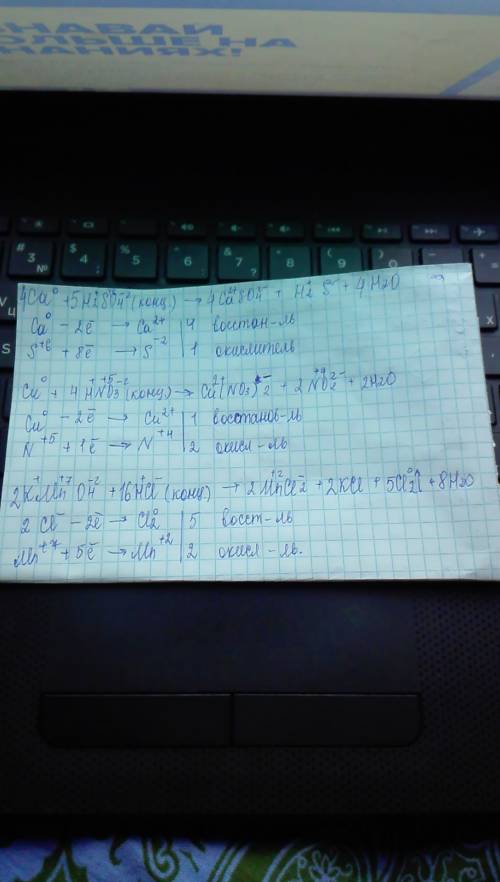 ЗНАВАЙ
БОЛЬШЕ НА
ЗНАНИЯХ!
# 3 №
$ 4
% 5
^ 6
& 7 ?
* 8
( 9
) 0
4Ca⁰ + 5H₂⁺S⁺⁶O₄⁻² (конц.) → 4Ca⁺²SO₄²⁻ + H₂⁺S⁻² + 4H₂O
Ca⁰ – 2ē → Ca²⁺ | 4 восстан-ль
S⁺⁶ + 8ē → S⁻² | 1 окислитель
Cu⁰ + 4H⁺N⁺⁵O₃⁻² (конц) → Cu²⁺(NO₃)₂⁻ + 2N⁺⁴O₂²⁻ + 2H₂O
Cu⁰ – 2ē → Cu²⁺ | 1 восстанов-ль
N⁺⁵ + 1ē → N⁺⁴ | 2 окисл-ль
2K⁺Mn⁺⁷O₄⁻² + 16H⁺Cl⁻ (конц) → 2Mn⁺²Cl₂ + 2KCl + 5Cl₂⁰↑ + 8H₂O
2Cl⁻ – 2ē → Cl₂⁰ | 5 восст-ль
Mn⁺⁷ + 5ē → Mn⁺² | 2 окисл-ль.